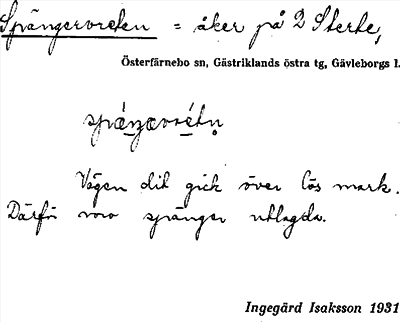 Spångervreten = åker på 2 Sterte,
Österfärnebo sn, Gästriklands östra tg, Gävleborgs l.
Vägen dit gick över lös mark.
Därför voro spänger utlagda.
Ingegärd Isaksson 1931